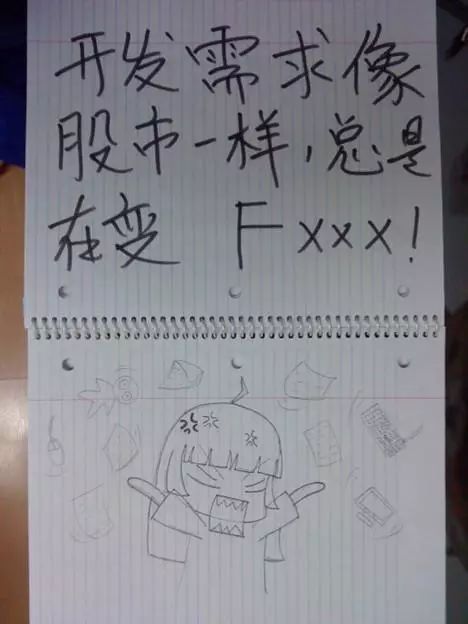 开发需求像
股市一样,总是
在变 Fxxx!